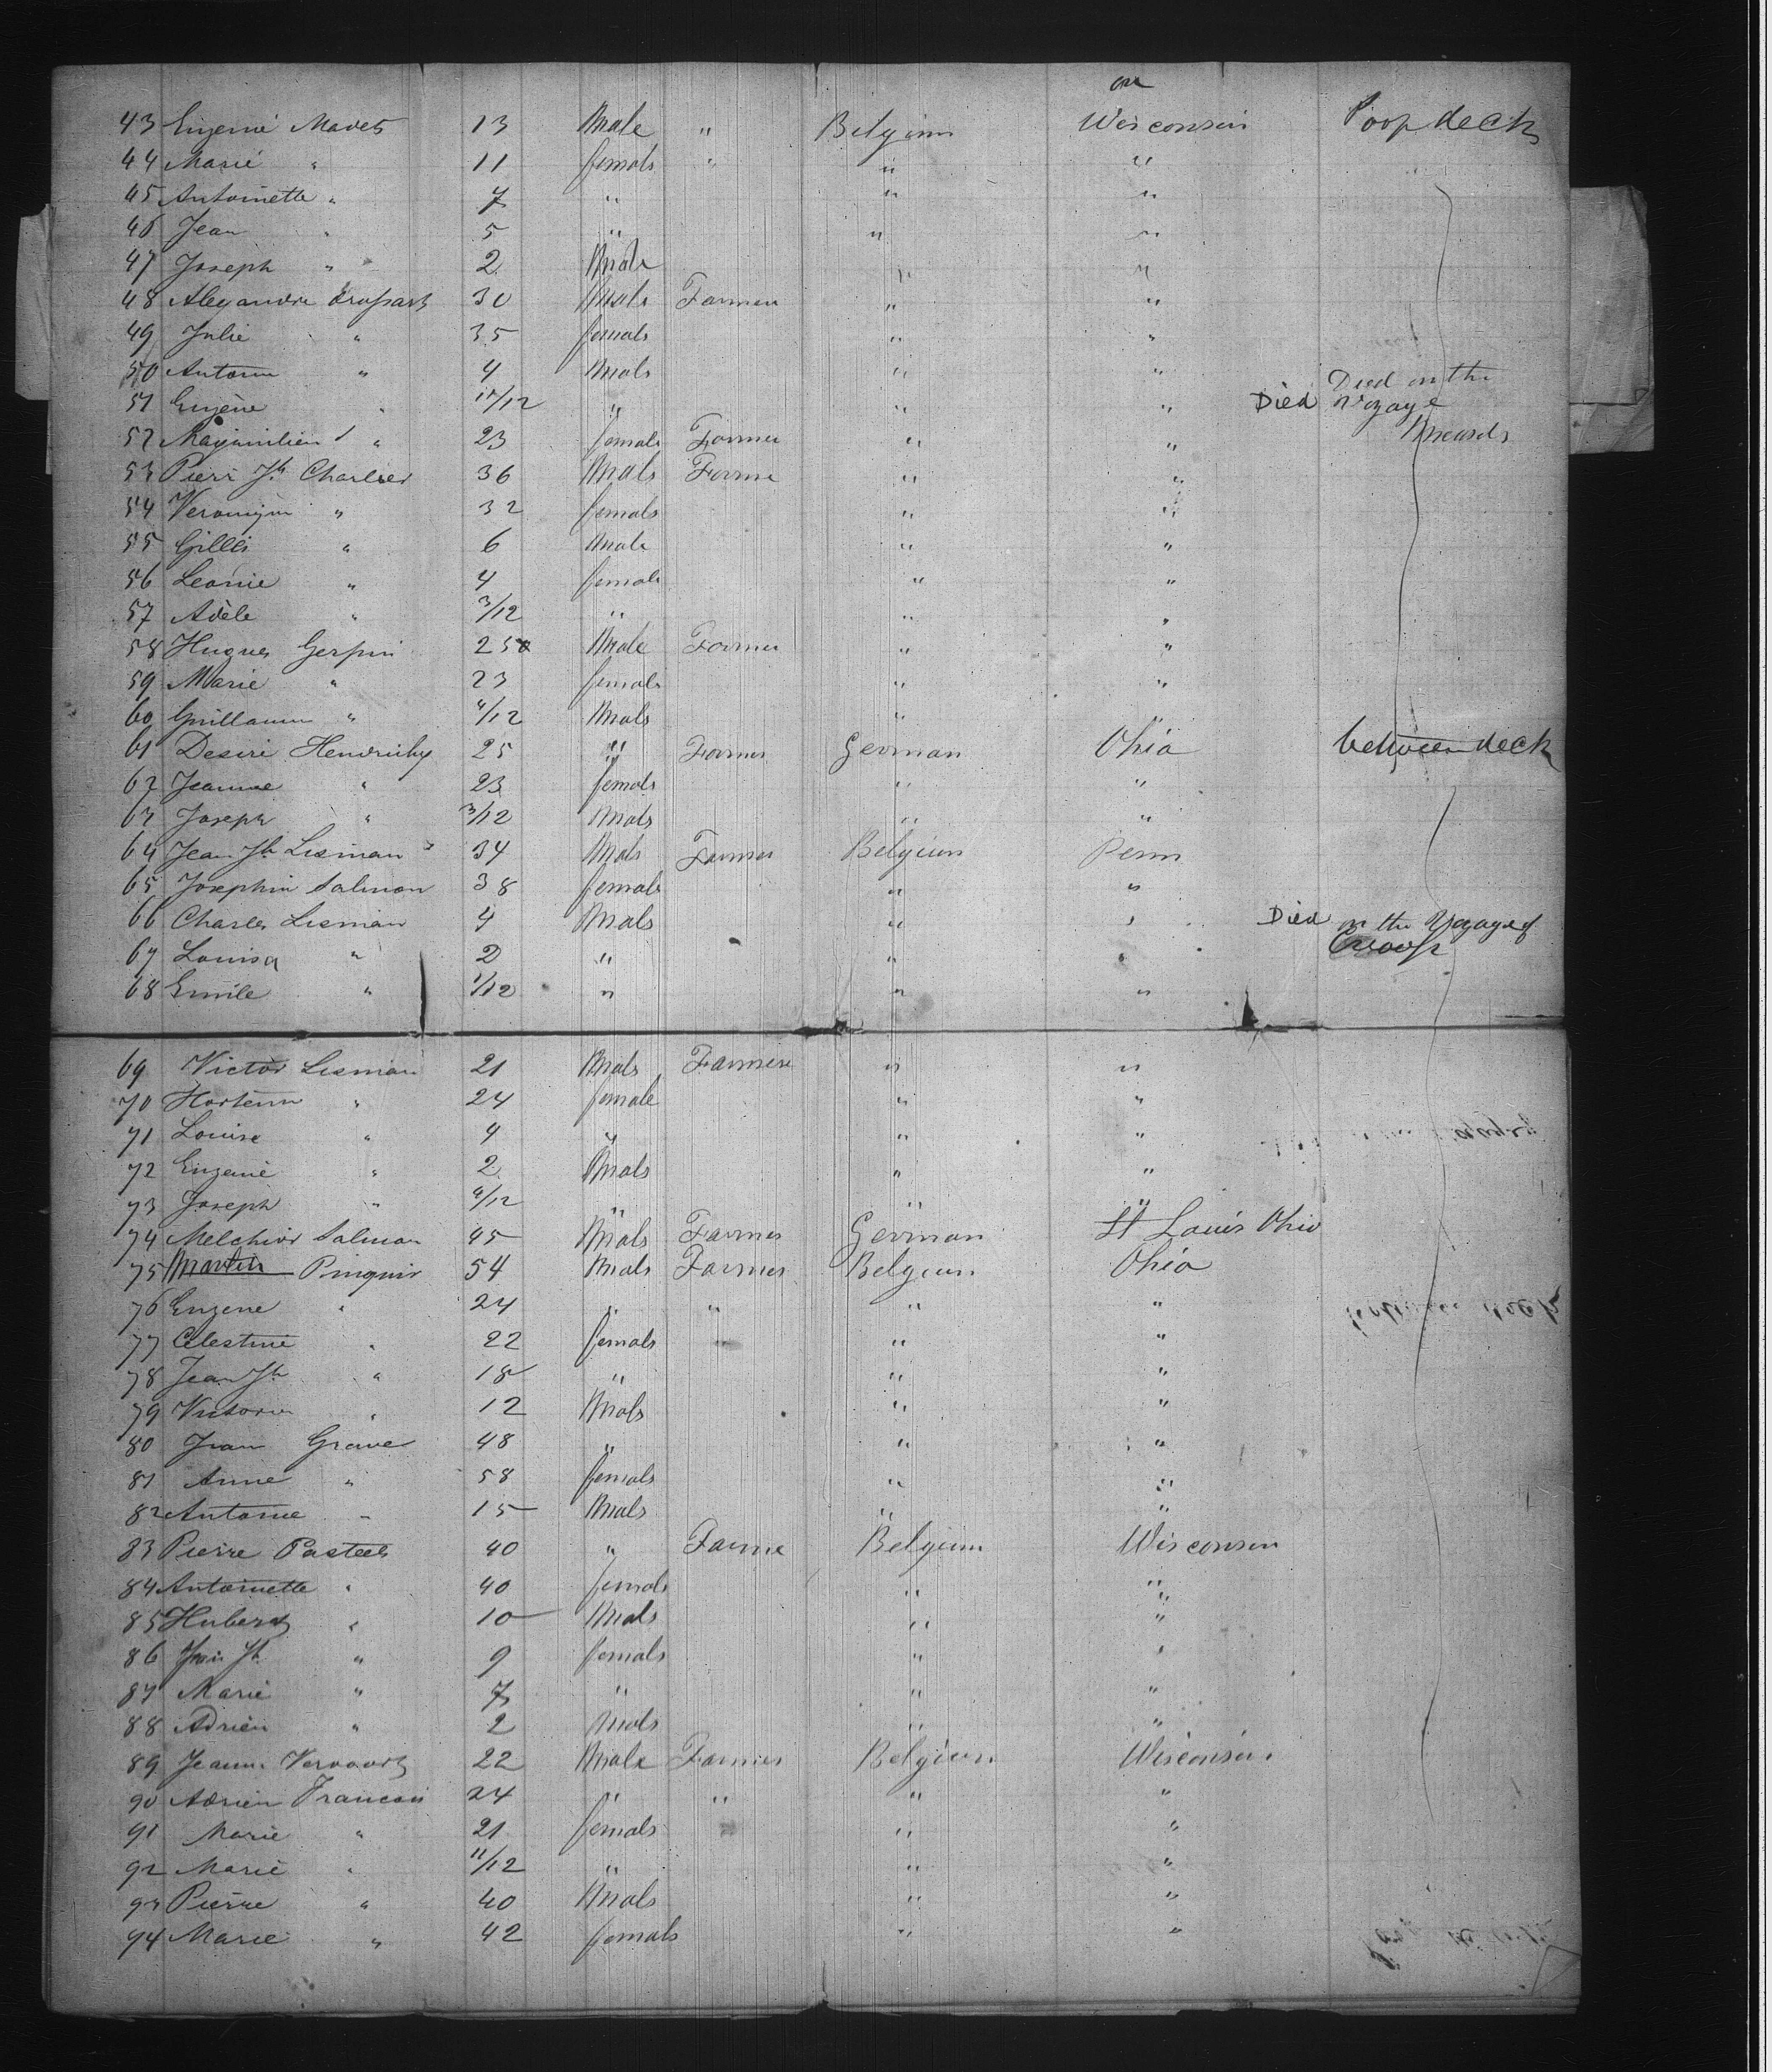 43 Eugenié Mavet 13 Male " Belgium Wisconsin Poop deck
44 Marié " 11 female " " "
45 Antoinette " 7 " " "
46 Jean " 5 " " "
47 Joseph " 2 Male " "
48 Alexandre 30 Male Farmer " "
49 Julie " 35 female " "
50 Antoine " 4 Male " "
51 Eugène " 11/12 " " " Died Died on the voyage
52 Maximilien " 23 female Farmer " " Measels
53 Pierr Jh Charlier 36 Male Farme " "
54 Veroniqu " 32 female " "
55 Gilles " 6 Male " "
56 Leonie " 4 female " "
57 Adèle " 3/12 " " "
58 Hugues Gerpin 25 Male Farmer " "
59 Marie " 23 female " "
60 Guillaum " 4/12 Male "
61 Desiré Hendricky 25 " Farmer German Ohio between deck
62 Jeanne " 23 female " "
63 Joseph " 3/12 Male " "
64 Jean Jh Lisman 34 Male Farmer Belgium Penn
65 Josephin Salmon 38 female " "
66 Charles Lisman 4 Male " " Died on the Voyage of
67 Louisa " 2 " " " Croup
68 Emile " 1/12 " " "
69 Victor Lisman 21 Male Farmer " "
70 Hortenn " 24 female " "
71 Louise " 4 " " "
72 Eugenié " 2 Male " "
73 Joseph " 4/12 " " "
74 Melchior Salmon 45 Male Farmer German St Louis Ohio
75 Martin 54 Male Farmer Belgium Ohio
76 Eugene " 24 " " " "
77 Celestine " 22 female " "
78 Jean Jh " 18 " " "
79 Victorin " 12 Male " "
80 Jean Grave 48 " " "
81 Anne " 58 female " "
82 Antoine " 15 Male " "
83 Pierre Pasteels 40 " Farme Belgium Wisconsin
84 Antoinette " 40 female " "
85 Hubert " 10 Male " "
86 Jh " 9 female " "
87 Marie " 7 " " "
88 Adrien " 2 Male " "
89 Jeanne Vervoort 22 Male Farmer Belgium Wisconsin
90 Adrien Francois 24 " " " "
91 Marie " 21 female " "
92 Marié " 11/12 " " "
93 Pierre " 40 Male " "
94 Marie " 42 female " "